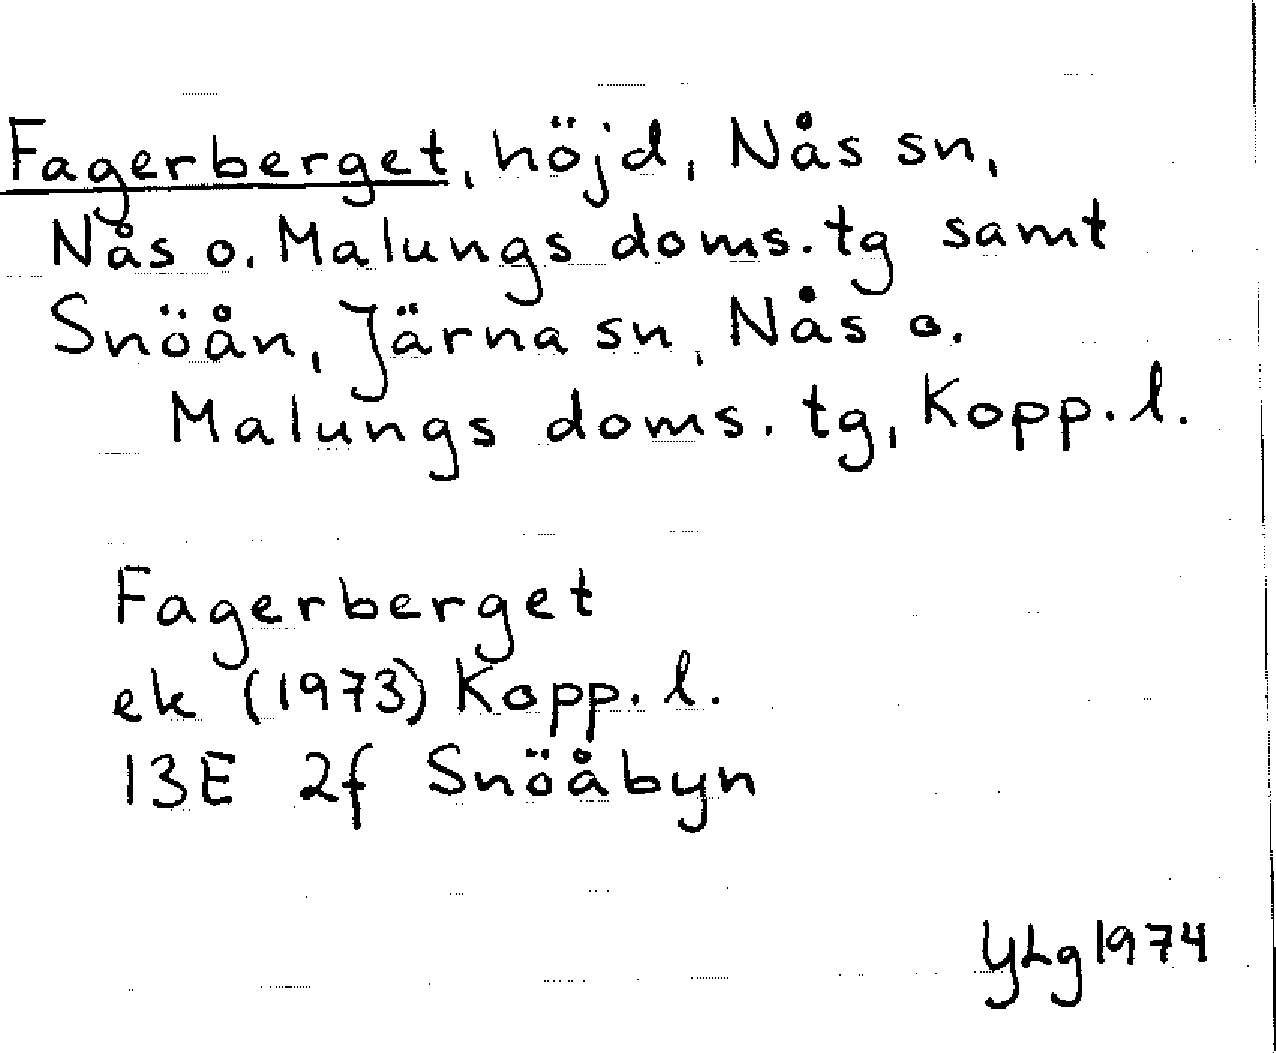 Fagerberget, höjd, Nås sn,
Nås o. Malungs doms.tg samt
Snöån, Järna sn, Nås o.
Malungs doms. tg, Kopp. l.
Fagerberget
ek (1973) Kopp. l.
13E 2f Snöåbyn
YLg 1974